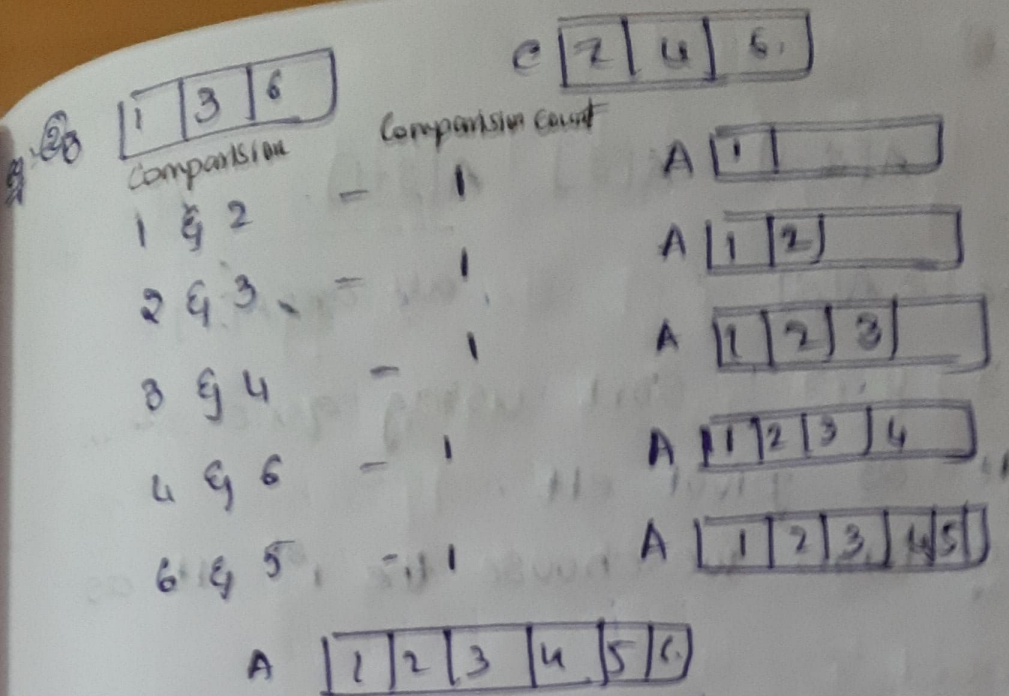 B 1 3 6 C 2 4 5
Comparision Comparision count
1 & 2 - 1 A 1
2 & 3 - 1 A 1 2
3 & 4 - 1 A 1 2 3
4 & 6 - 1 A 1 2 3 4
6 & 5 - 1 A 1 2 3 4 5
A 1 2 3 4 5 6